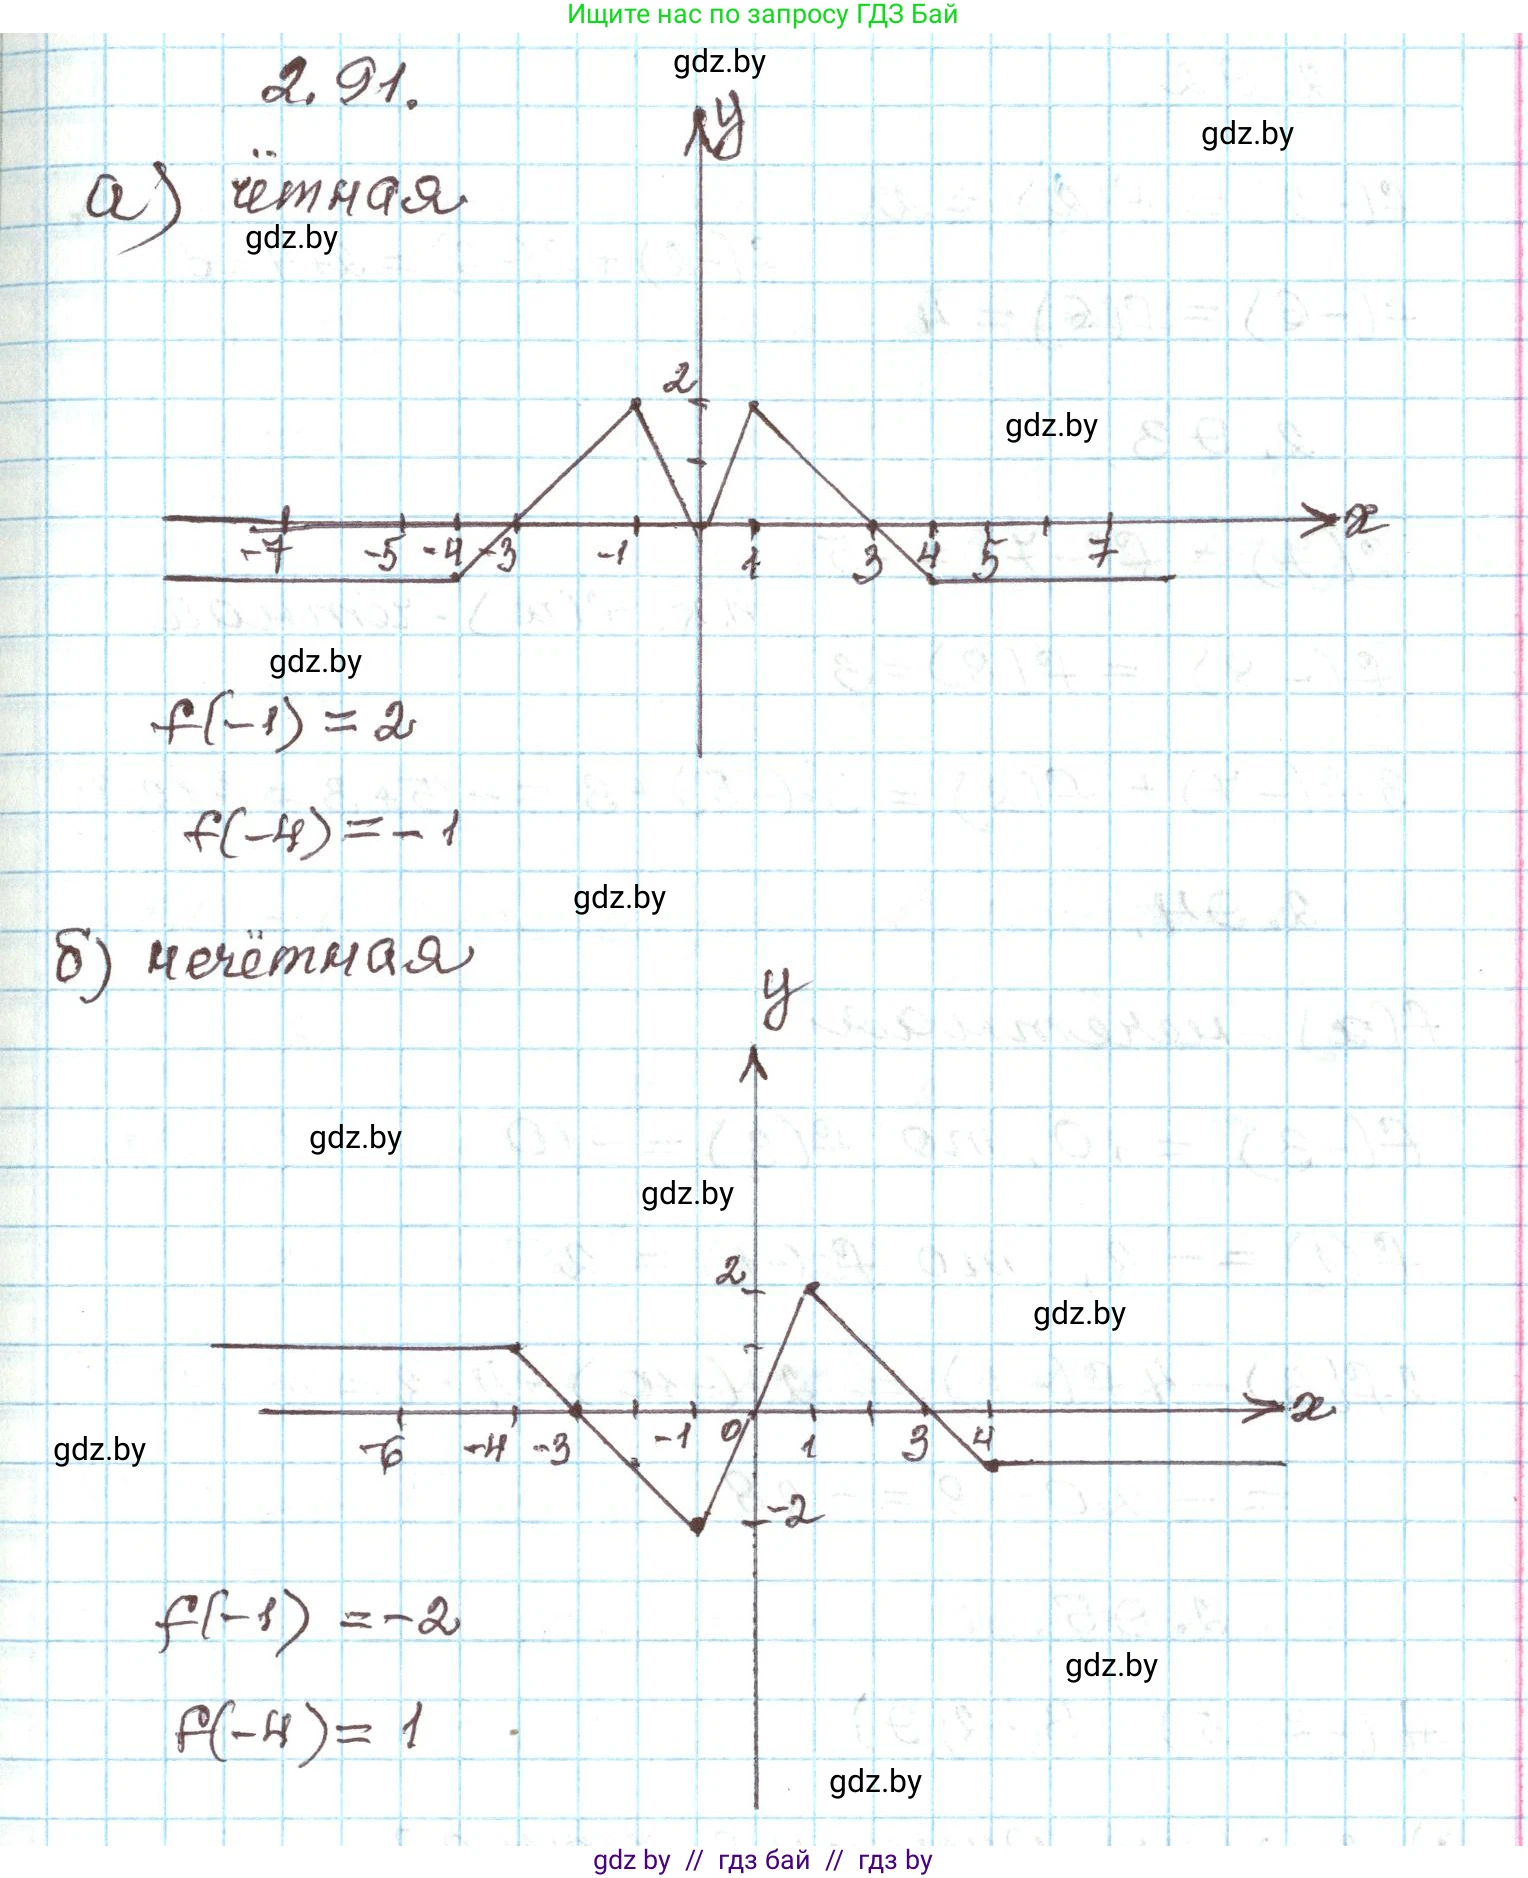 Ищите нас по запросу ГДЗ Бай
gdz.by
2.91.
gdz.by
y
а) чётная
gdz.by
2
gdz.by
x
-7 -5 -4 -3 -1 1 3 4 5 7
gdz.by
f(-1) = 2
f(-4) = -1
gdz.by
б) нечётная
y
gdz.by
gdz.by
2
gdz.by
x
-6 -4 -3 -1 0 1 3 4
gdz.by
-2
f(-1) = -2
gdz.by
f(-4) = 1
gdz.by
gdz by // гдз бай // гдз by